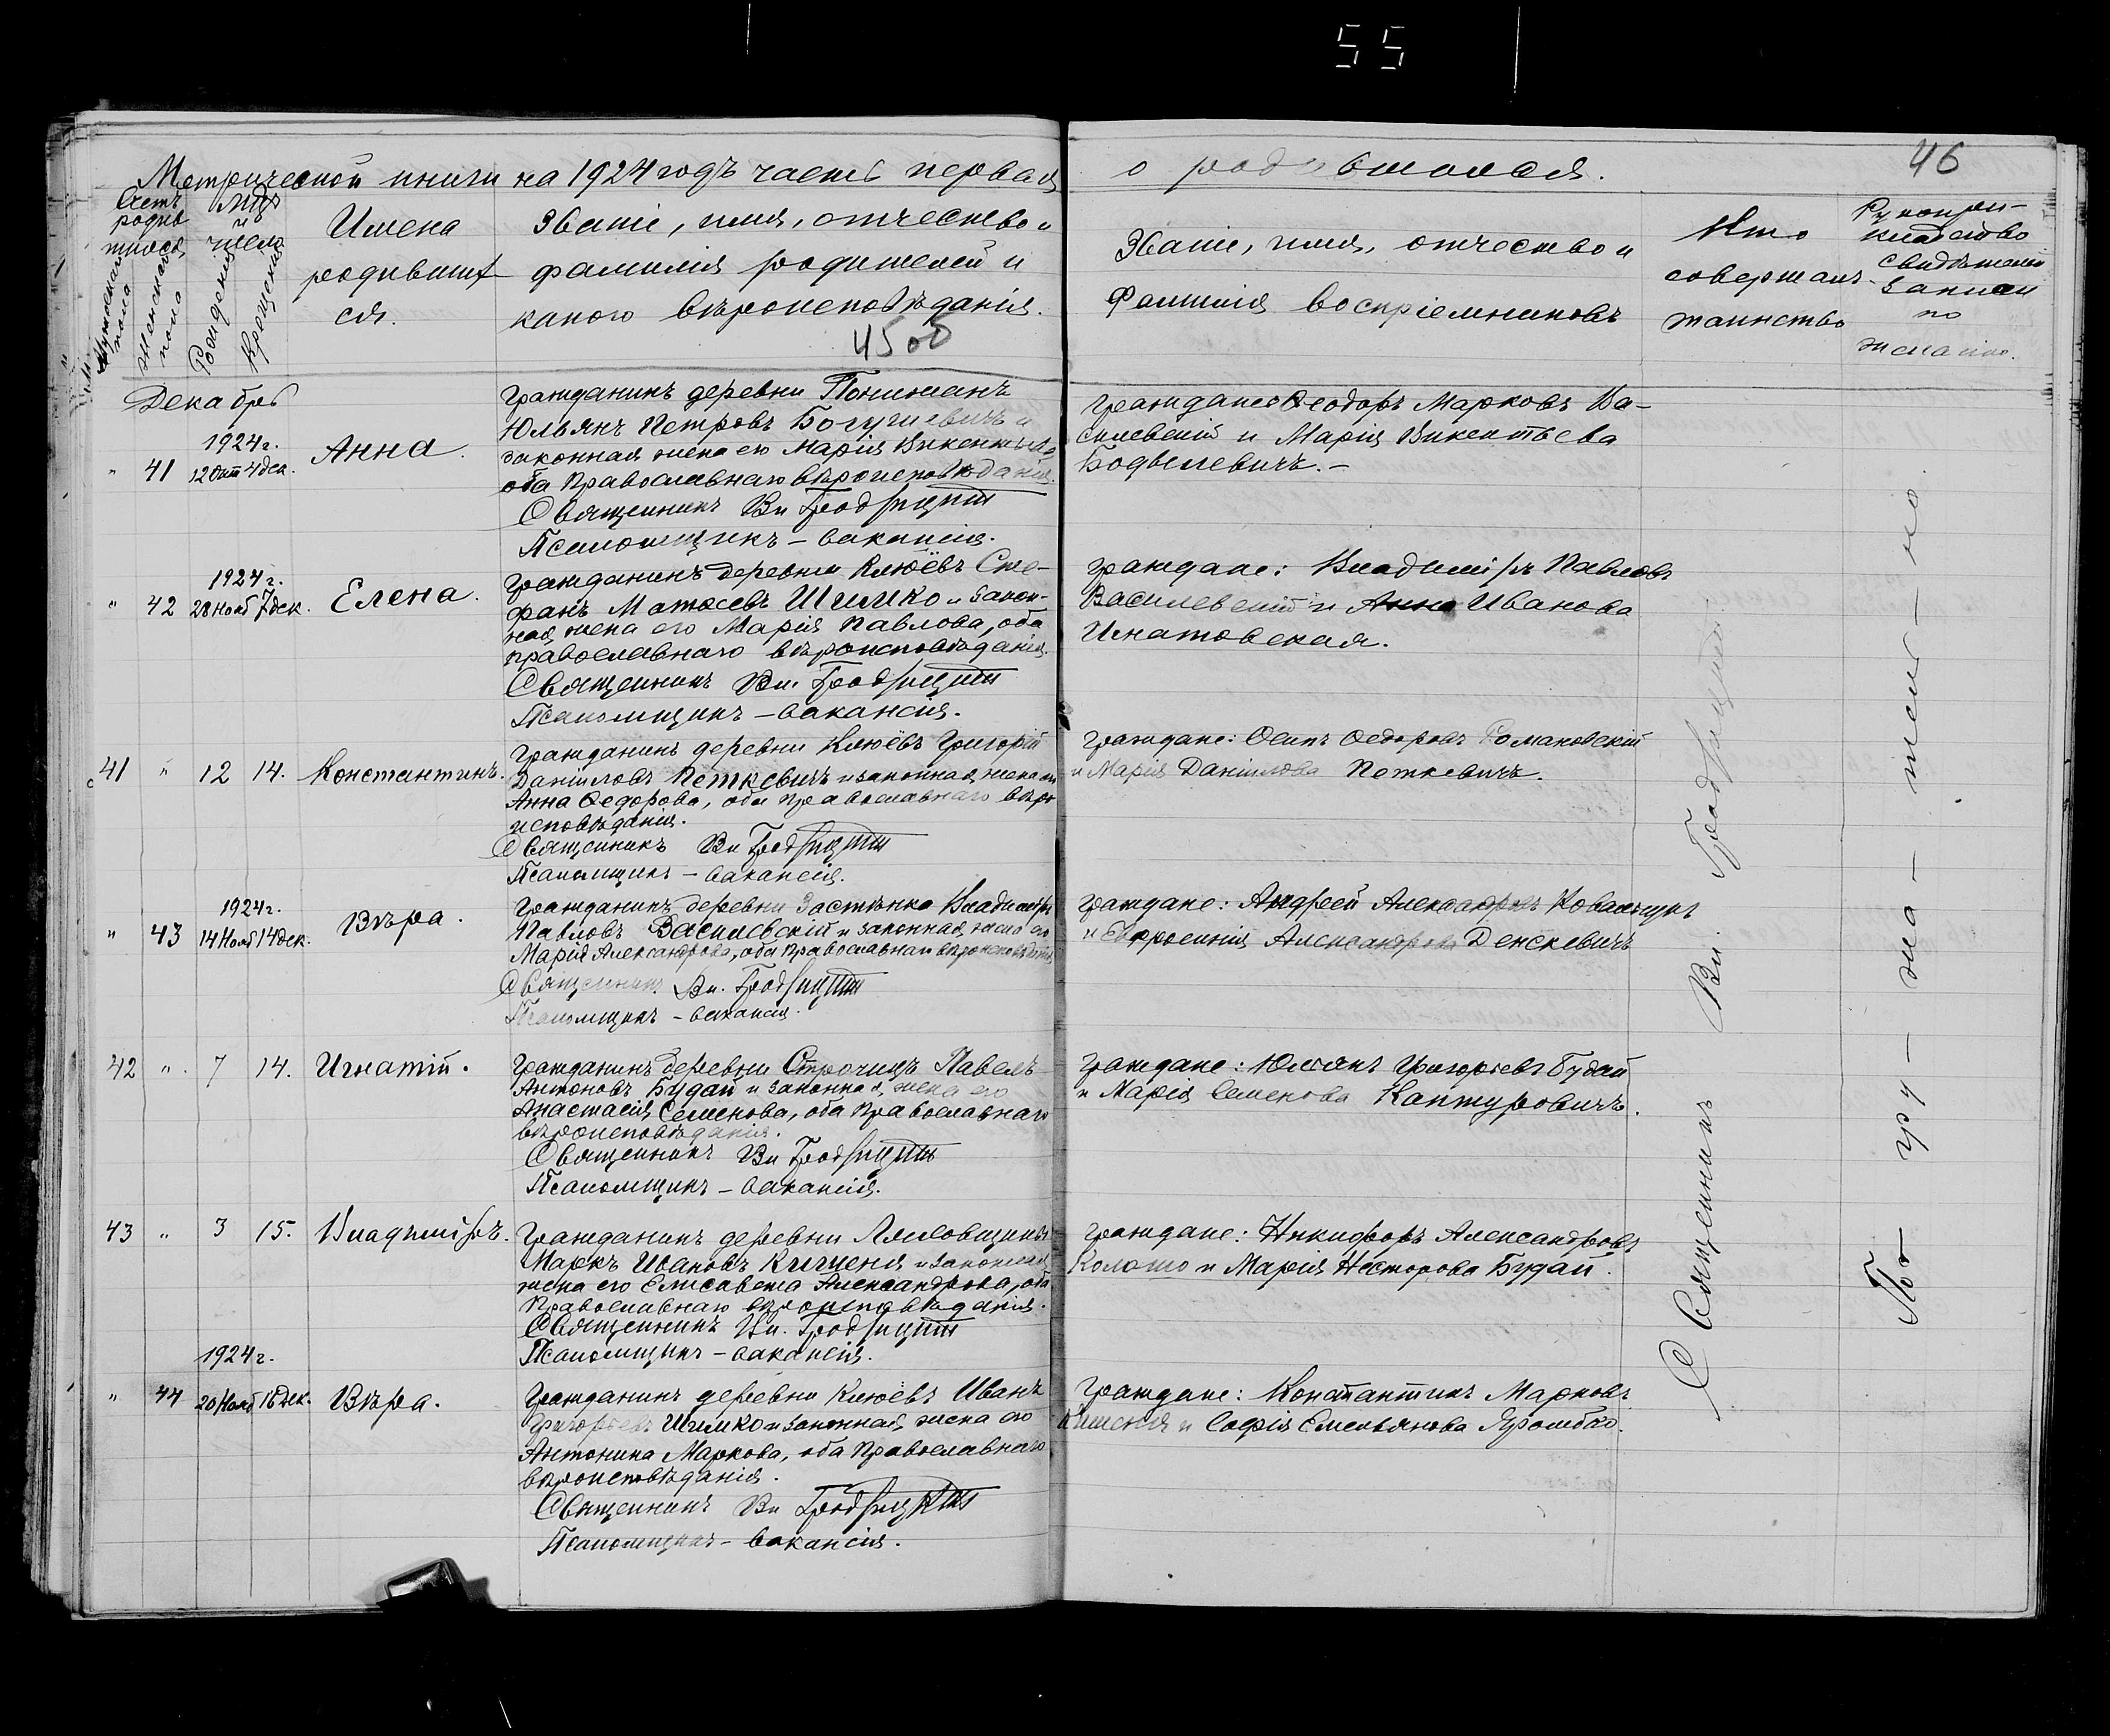 55
46
Метрической книги на 1924 годъ часть первая
о родившихся.
Счетъ родившихся
Мужескаго пола
Женскаго пола
Мѣсяцъ и число
Рожденія
Крещенія
Имена
родивших
ся.
Званіе, имя, отчество и
фамилія родителей и
какого вѣроисповѣданія.
4500
Званіе, имя, отчество и
Фамилія воспріемниковъ
Кто
совершалъ
таинство
Рукопри-
кладство
свидѣтелей
записи
по
желанію.
Декабрь
" 41
1924 г.
12 Окт 4 дек.
Анна.
Гражданинъ деревни
Юльянъ Петровъ Богушевичъ и
законная жена его Марія Викентьева
оба Православнаго вѣроисповѣданія.
Священникъ Вл Гродзицкій
Псаломщикъ – вакансія.
Граждане Ѳеодоръ Марковъ Ва-
силевскій и Марія Викентьева
Бодылевичъ. –
" 42
1924 г.
28 Нояб 7 дек.
Елена.
Гражданинъ деревни Клюёвъ Сте-
фанъ Матѳеевъ Шимко и закон-
ная жена его Марія Павлова, оба
православнаго вѣроисповѣданія.
Священникъ Вл. Гродзицкій
Псаломщикъ – вакансія.
Граждане: Владиміръ Павловъ
Василевскій и Анна Иванова
Игнатовская.
41 " 12 14. Константинъ.
Гражданинъ деревни Клюёвъ Григорій
Даніиловъ Петкевичъ и законная жена его
Анна Ѳедорова, оба Православнаго вѣро
исповѣданія.
Священникъ Вл Гродзицкій
Псаломщикъ – вакансія.
Граждане: Осипъ Ѳедоровъ Романовскій
и Марія Даніилова Петкевичъ.
" 43
1924 г.
14 Нояб 14 дек.
Вѣра.
Гражданинъ деревни Застѣнка Владиміръ
Павловъ Василевскій и законная жена его
Марія Александрова, оба Православнаго вѣроисповѣданія
Священникъ Вл. Гродзицкій
Псаломщикъ – вакансія.
Граждане: Андрей Александровъ Ковальчукъ
и Евфросинія Александрова Денскевичъ
42 " 7 14. Игнатій.
Гражданинъ деревни Строчицъ Павелъ
Антоновъ Будай и законная жена его
Анастасія Семенова, оба Православнаго
вѣроисповѣданія.
Священникъ Вл Гродзицкій
Псаломщикъ – вакансія.
Граждане: Юльянъ Григорьевъ Будай
и Марія Семенова Каптуровичъ.
43 " 3 15. Владиміръ.
Гражданинъ деревни
Маркъ Ивановъ и законная
жена его Елисавета Александрова, оба
Православнаго вѣроисповѣданія.
Священникъ Вл. Гродзицкій
Псаломщикъ – вакансія.
Граждане: Никифоръ Александровъ
и Марія Несторова Будай.
" 44
1924 г.
20 Нояб 18 Дек.
Вѣра.
Гражданинъ деревни Клюёвъ Иванъ
Григорьевъ Шимко и законная жена его
Антонина Маркова, оба Православнаго
вѣроисповѣданія.
Священникъ Вл Гродзицкій
Псаломщикъ – вакансія.
Граждане: Константинъ Марковъ
и Софія Емельянова
Священникъ Вл. Гродзицкій